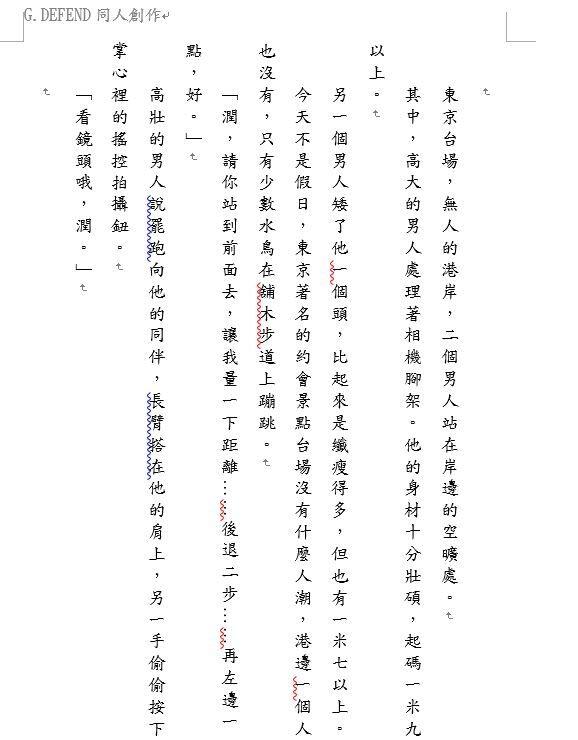 G.DEFEND 同人創作
東京台場，無人的港岸，二個男人站在岸邊的空曠處。
其中，高大的男人處理著相機腳架。他的身材十分壯碩，起碼一米九
以上。
另一個男人矮了他一個頭，比起來是纖瘦得多，但也有一米七以上。
今天不是假日，東京著名的約會景點台場沒有什麼人潮，港邊一個人
也沒有，只有少數水鳥在舖木步道上蹦跳。
「潤，請你站到前面去，讓我量一下距離……後退二步……再左邊一
點，好。」
高壯的男人說罷跑向他的同伴，長臂搭在他的肩上，另一手偷偷按下
掌心裡的搖控拍攝鈕。
「看鏡頭哦，潤。」